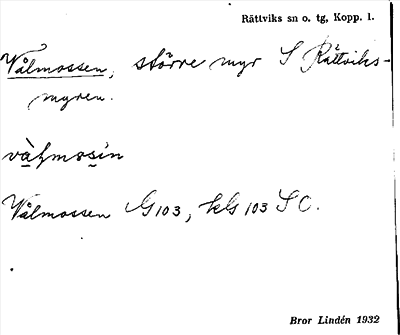 Rättviks sn o. tg, Kopp. l.
Vålmossen, större myr S Rättviks-
myren.
vàḷmosin
Vålmossen G 103, kls 103 SO.
Bror Lindén 1932